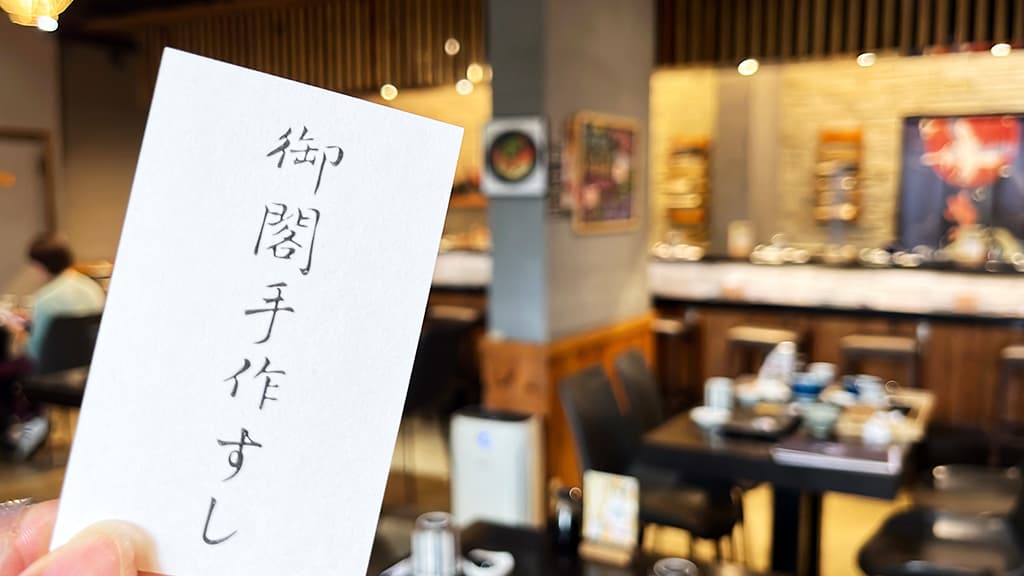 御閣手作すし